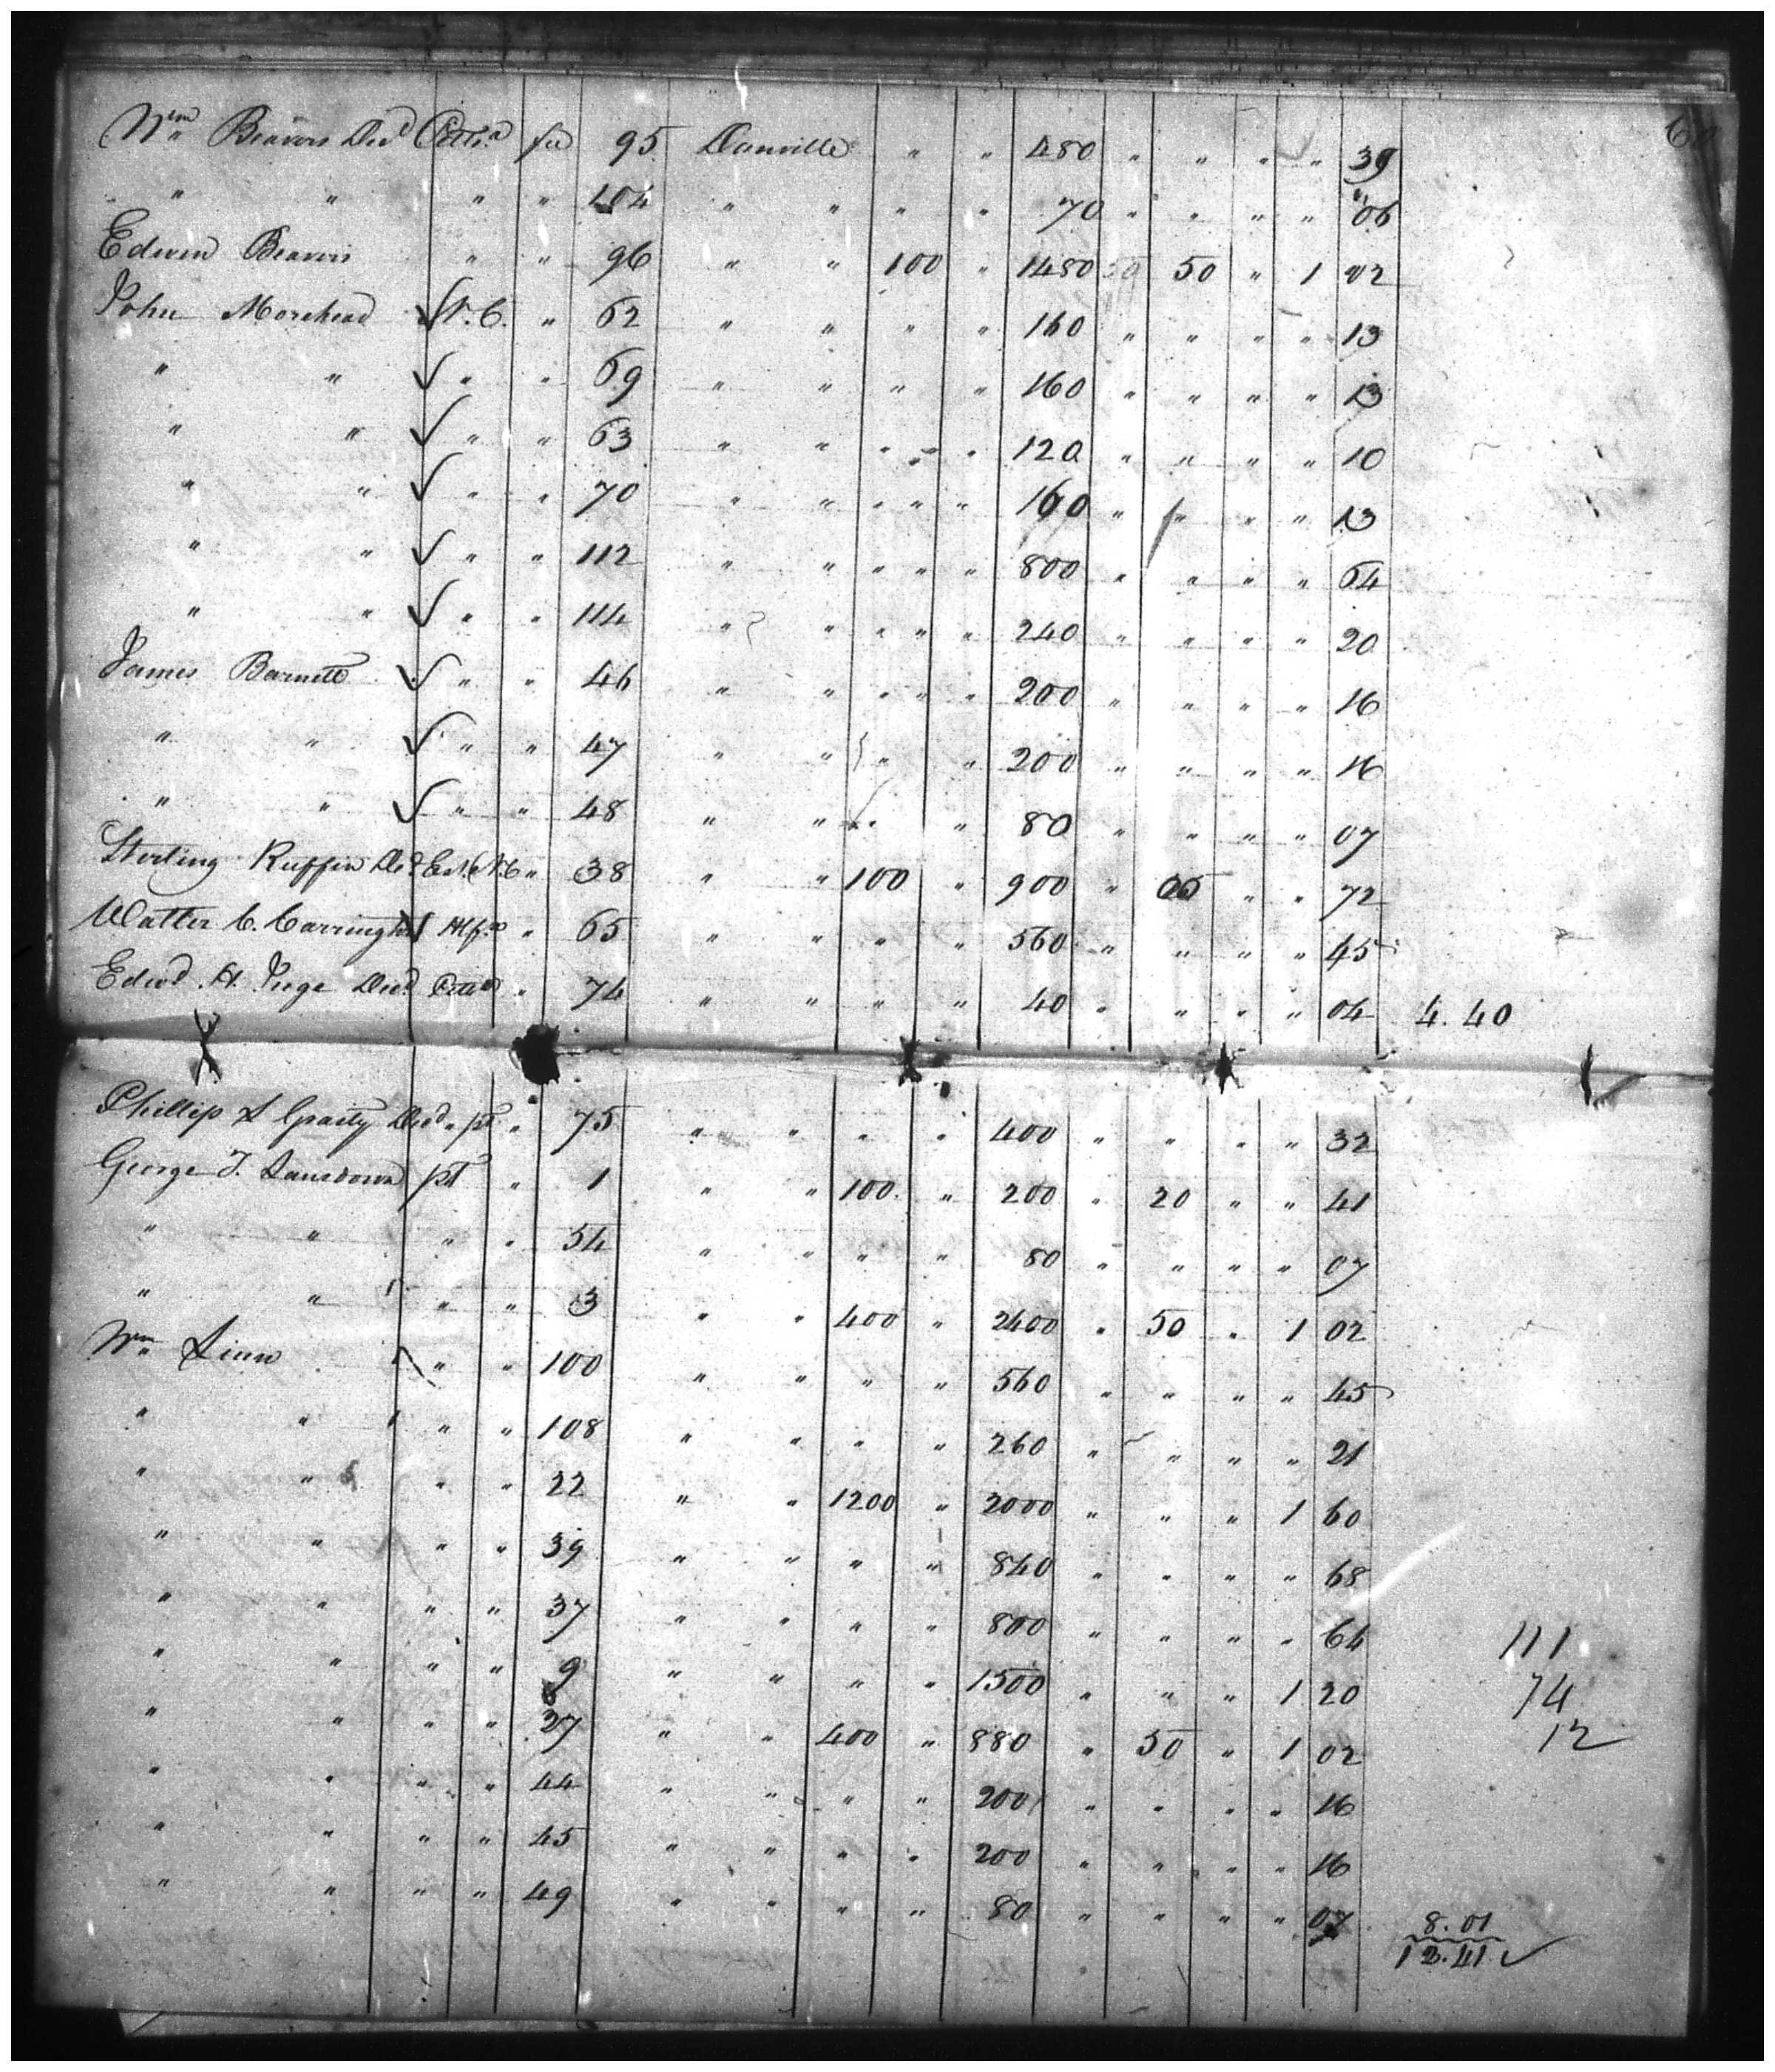 Wm Beavers Decd Pitts.a fee 95 Danville " " 480 " " " " 39
" " " " 104 " " " " 70 " " " " 06
Edwin Beavers " " 96 " " 100 " 1480 50 " 1 02
John Morehead N.C. " 62 " " " " 160 " " " " 13
" " " " 69 " " " " 160 " " " " 13
" " " " 63 " " " " 120 " " " " 10
" " " " 70 " " " " " 160 " " " " 13
" " " " 112 " " " " " 800 " " " " 64
" " " " 114 " " " " " 240 " " " " 20
James Barnett " " 46 " " " " " 200 " " " " 16
" " " " 47 " " " " 200 " " " " 16
" " " " 48 " " " " 80 " " " " 07
Sterling Ruffin Decd Est. N.C " 38 " " 100 " 900 " " " 72
Walter C. Carrington Hlfx " 65 " " " " 560 " " " " 45
Edwd H. Pege Decd Pitts " 74 " " " " 40 " " " " 04 4.40
Phillip S Grasty Decd " pt " 75 " " " " 400 " " " " 32
George T. Lansdown pt " 1 " " 100 " 200 " 20 " " 41
" " " " 54 " " " " 80 " " " " 07
" " " " 3 " " 400 " 2400 " 50 " 1 02
Wm Linn " " 100 " " " " 560 " " " " 45
" " " " 108 " " " " 260 " " " " 21
" " " " 22 " " 1200 " 2000 " " " 1 60
" " " " 39 " " " " 840 " " " " 68
" " " " 37 " " " " 800 " " " " 64 111
" " " " 9 " " " " 1500 " " " 1 20 74
" " " " 27 " " 400 " 880 " 50 " 1 02 12
" " " " 44 " " " " 200 " " " " 16
" " " " 45 " " " " 200 " " " " 16
" " " " 49 " " " " 80 " " " " 07 8.01
12.41